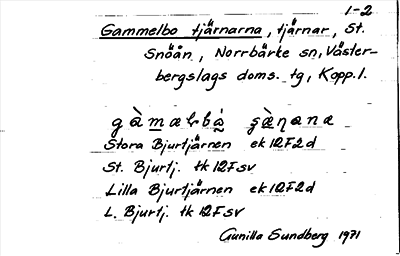 1-2
Gammelbo tjärnarna, tjärnar, St.
Snöån, Norrbärke sn, Väster-
bergslags doms. tg, Kopp. l.
Stora Bjurtjärnen ek 12F2d
St. Bjurtj. tk 12F sv
Lilla Bjurtjärnen ek 12F2d
L. Bjurtj. tk 12F sv
Gunilla Sundberg 1971